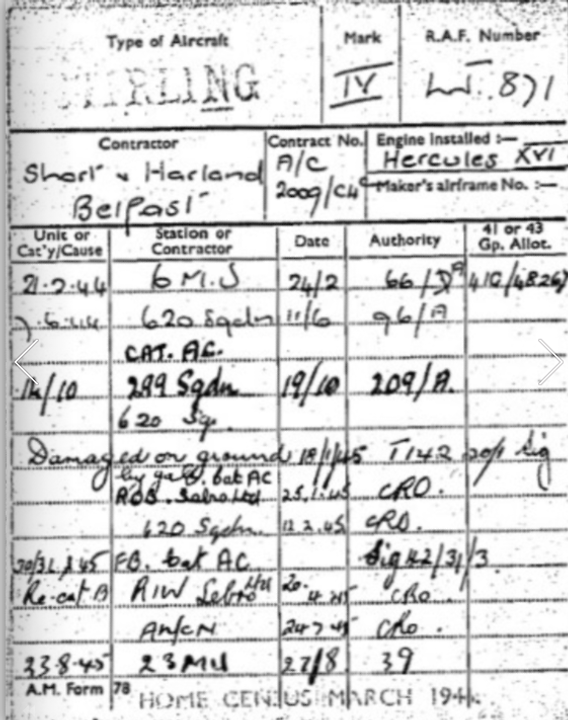 Type of Aircraft Mark R.A.F. Number
STIRLING IV LJ.871
Contractor Contract No. Engine installed :— Hercules XVI
Short & Harland A/C Maker's airframe No. :—
Belfast 2009/C4
Unit or Cat'y/Cause Station or Contractor Date Authority 41 or 43 Gp. Allot.
21.2.44 6 M.U 24/2 66/ 41G/4826
7.6.44 620 Sqdn 11/6 96/A
CAT. AC.
14/10 299 Sqdn 19/10 209/A.
620 Sq.
Damaged on ground 18/1/45 T142 20/1 Sig
by . Cat AC
ROS. Sebro Ltd 25.1.45 CRO.
620 Sqdn. 12.3.45 CRO.
30/31.3.45 FB. Cat AC Sig 42/31/3
Re-cat B RIW Sebro Ltd 20.4.45 CRO
24.7.45 CRO.
23.8.45 23 MU 27/8 39
A.M. Form 78 HOME CENSUS MARCH 194